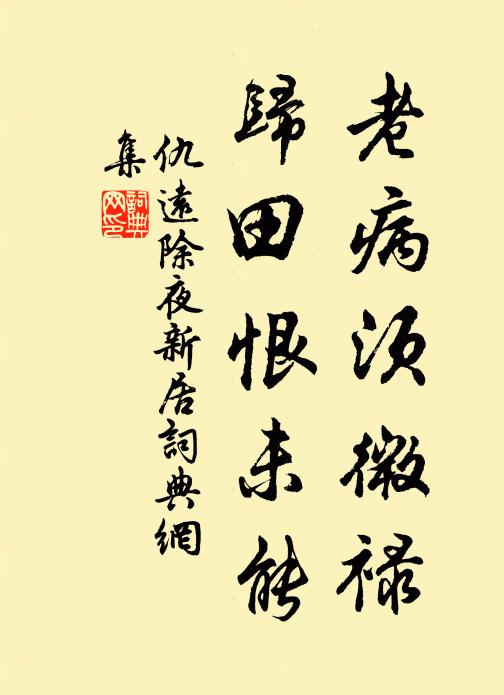 老病須微祿
歸田恨未能
仇遠除夜新居詞典網
集
詞典網印